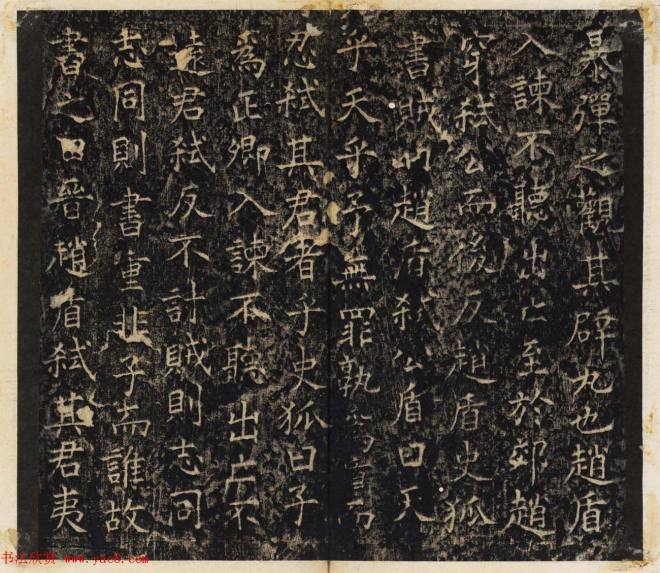 暴彈之觀其辟丸也趙盾
入諫不聽出亡至於郊趙
穿弒公而後反趙盾史狐
書賊曰趙盾弒公盾曰天
乎天乎予無罪孰為盾而
忍弒其君者乎史狐曰子
為正卿入諫不聽出亡不
遠君弒反不討賊則志同
志同則書重非子而誰故
書之曰晉趙盾弒其君夷
书法欣赏 www.yac8.com